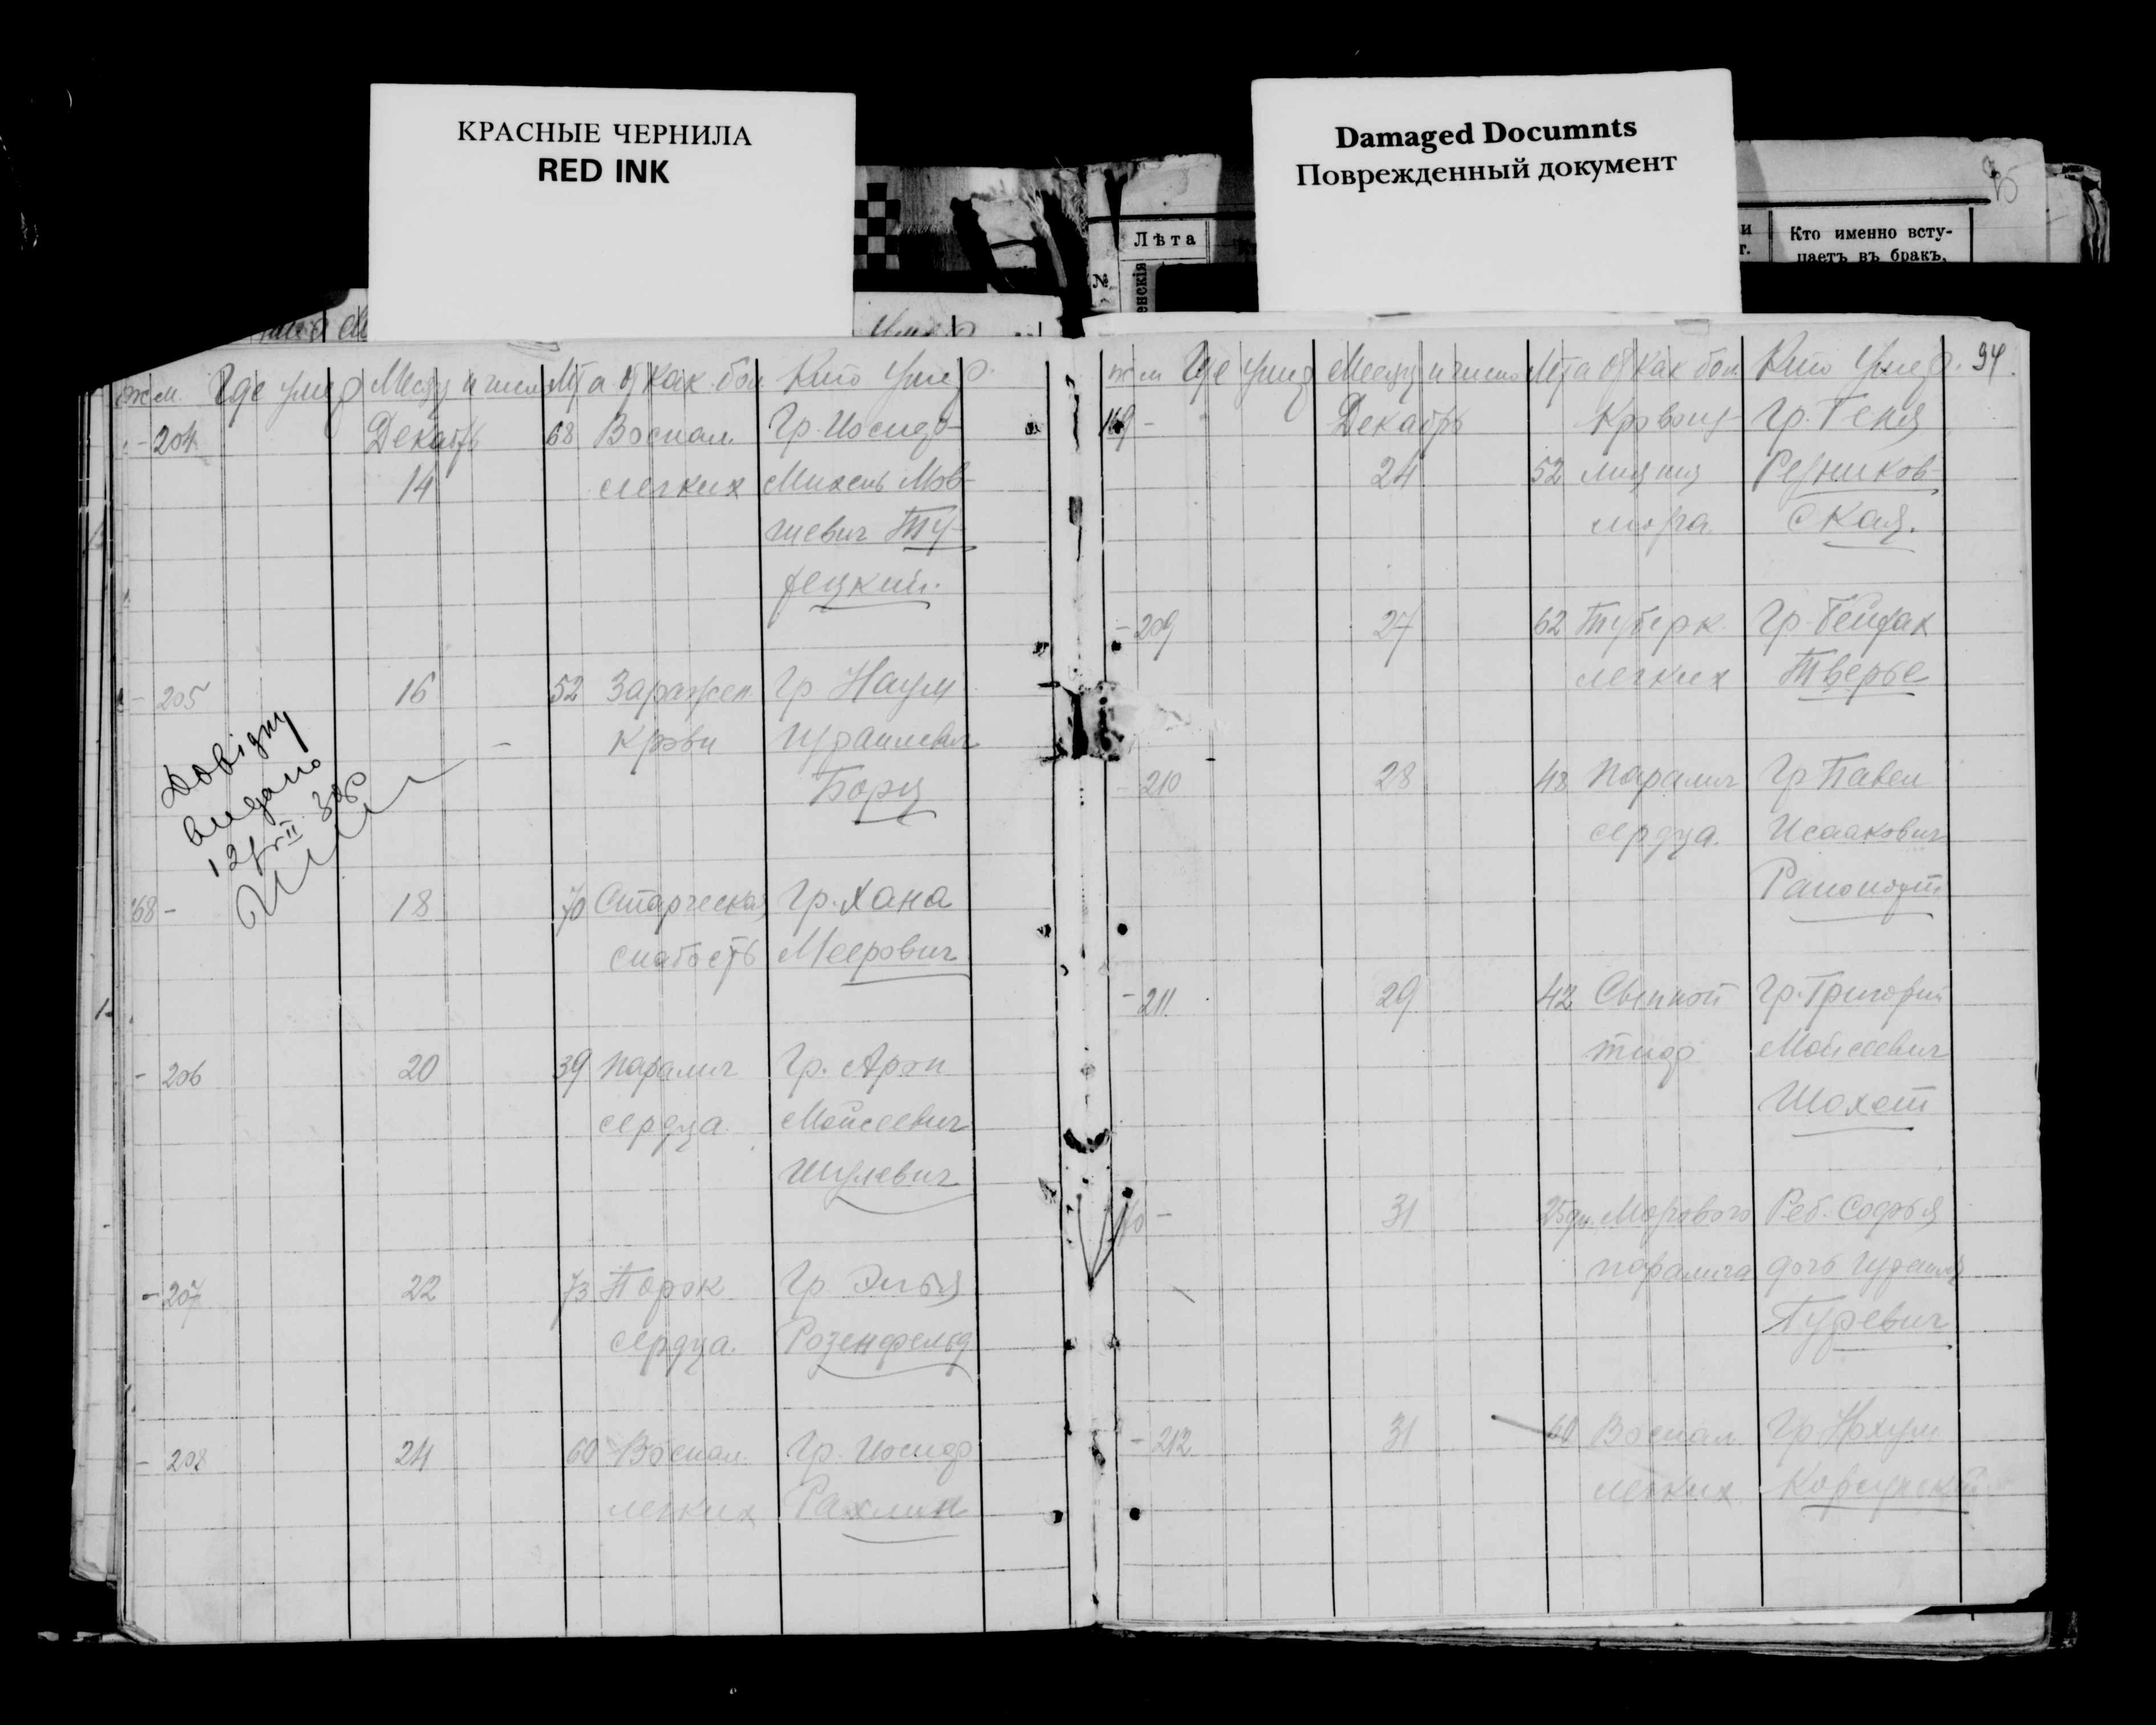 КРАСНЫЕ ЧЕРНИЛА
RED INK
Damaged Documnts
Поврежденный документ
Лѣта
№
Кто именно всту-
паетъ въ бракъ,
ж м. Где умер Месяц и число Лета От как. бол. Кто умер.
- 204 Декабрь 68 Воспал. Гр. Иосиф-
14 легких Михель Мов-
шевич
- 205 16 52 Заражен. Гр Наум
крови Израилевич
Борц
Довідку
видано
168 - 18 70 Старческая Гр. Хана
слабость Меерович
- 206 20 39 паралич Гр. Арон
сердца Мойсеевич
Шулевич
- 207 22 73 Порок Гр. Элья
сердца. Розенфельд
- 208 24 60 Воспал. Гр. Иосиф
легких Рахлин
ж м Где умер Месяц и число Лета От как бол Кто Умер. 94.
169 - Декабрь Кровоиз- Гр. Геня
24 52 лияния Резников-
мозга. ская.
- 209 27 62 Туберк. Гр.
легких Тверье
- 210 28 48 паралич Гр Павел
сердца. Исаакович
Рапопорт
- 211 29 42 Сыпной Гр. Григорий
тиф Мойсеевич
Шохет
170 - 31 25 дн. Мозгового Реб. Софья
паралича дочь Израиля
Гуревич
- 212 31 60 Воспал. Гр Нохум
легких Корсунский